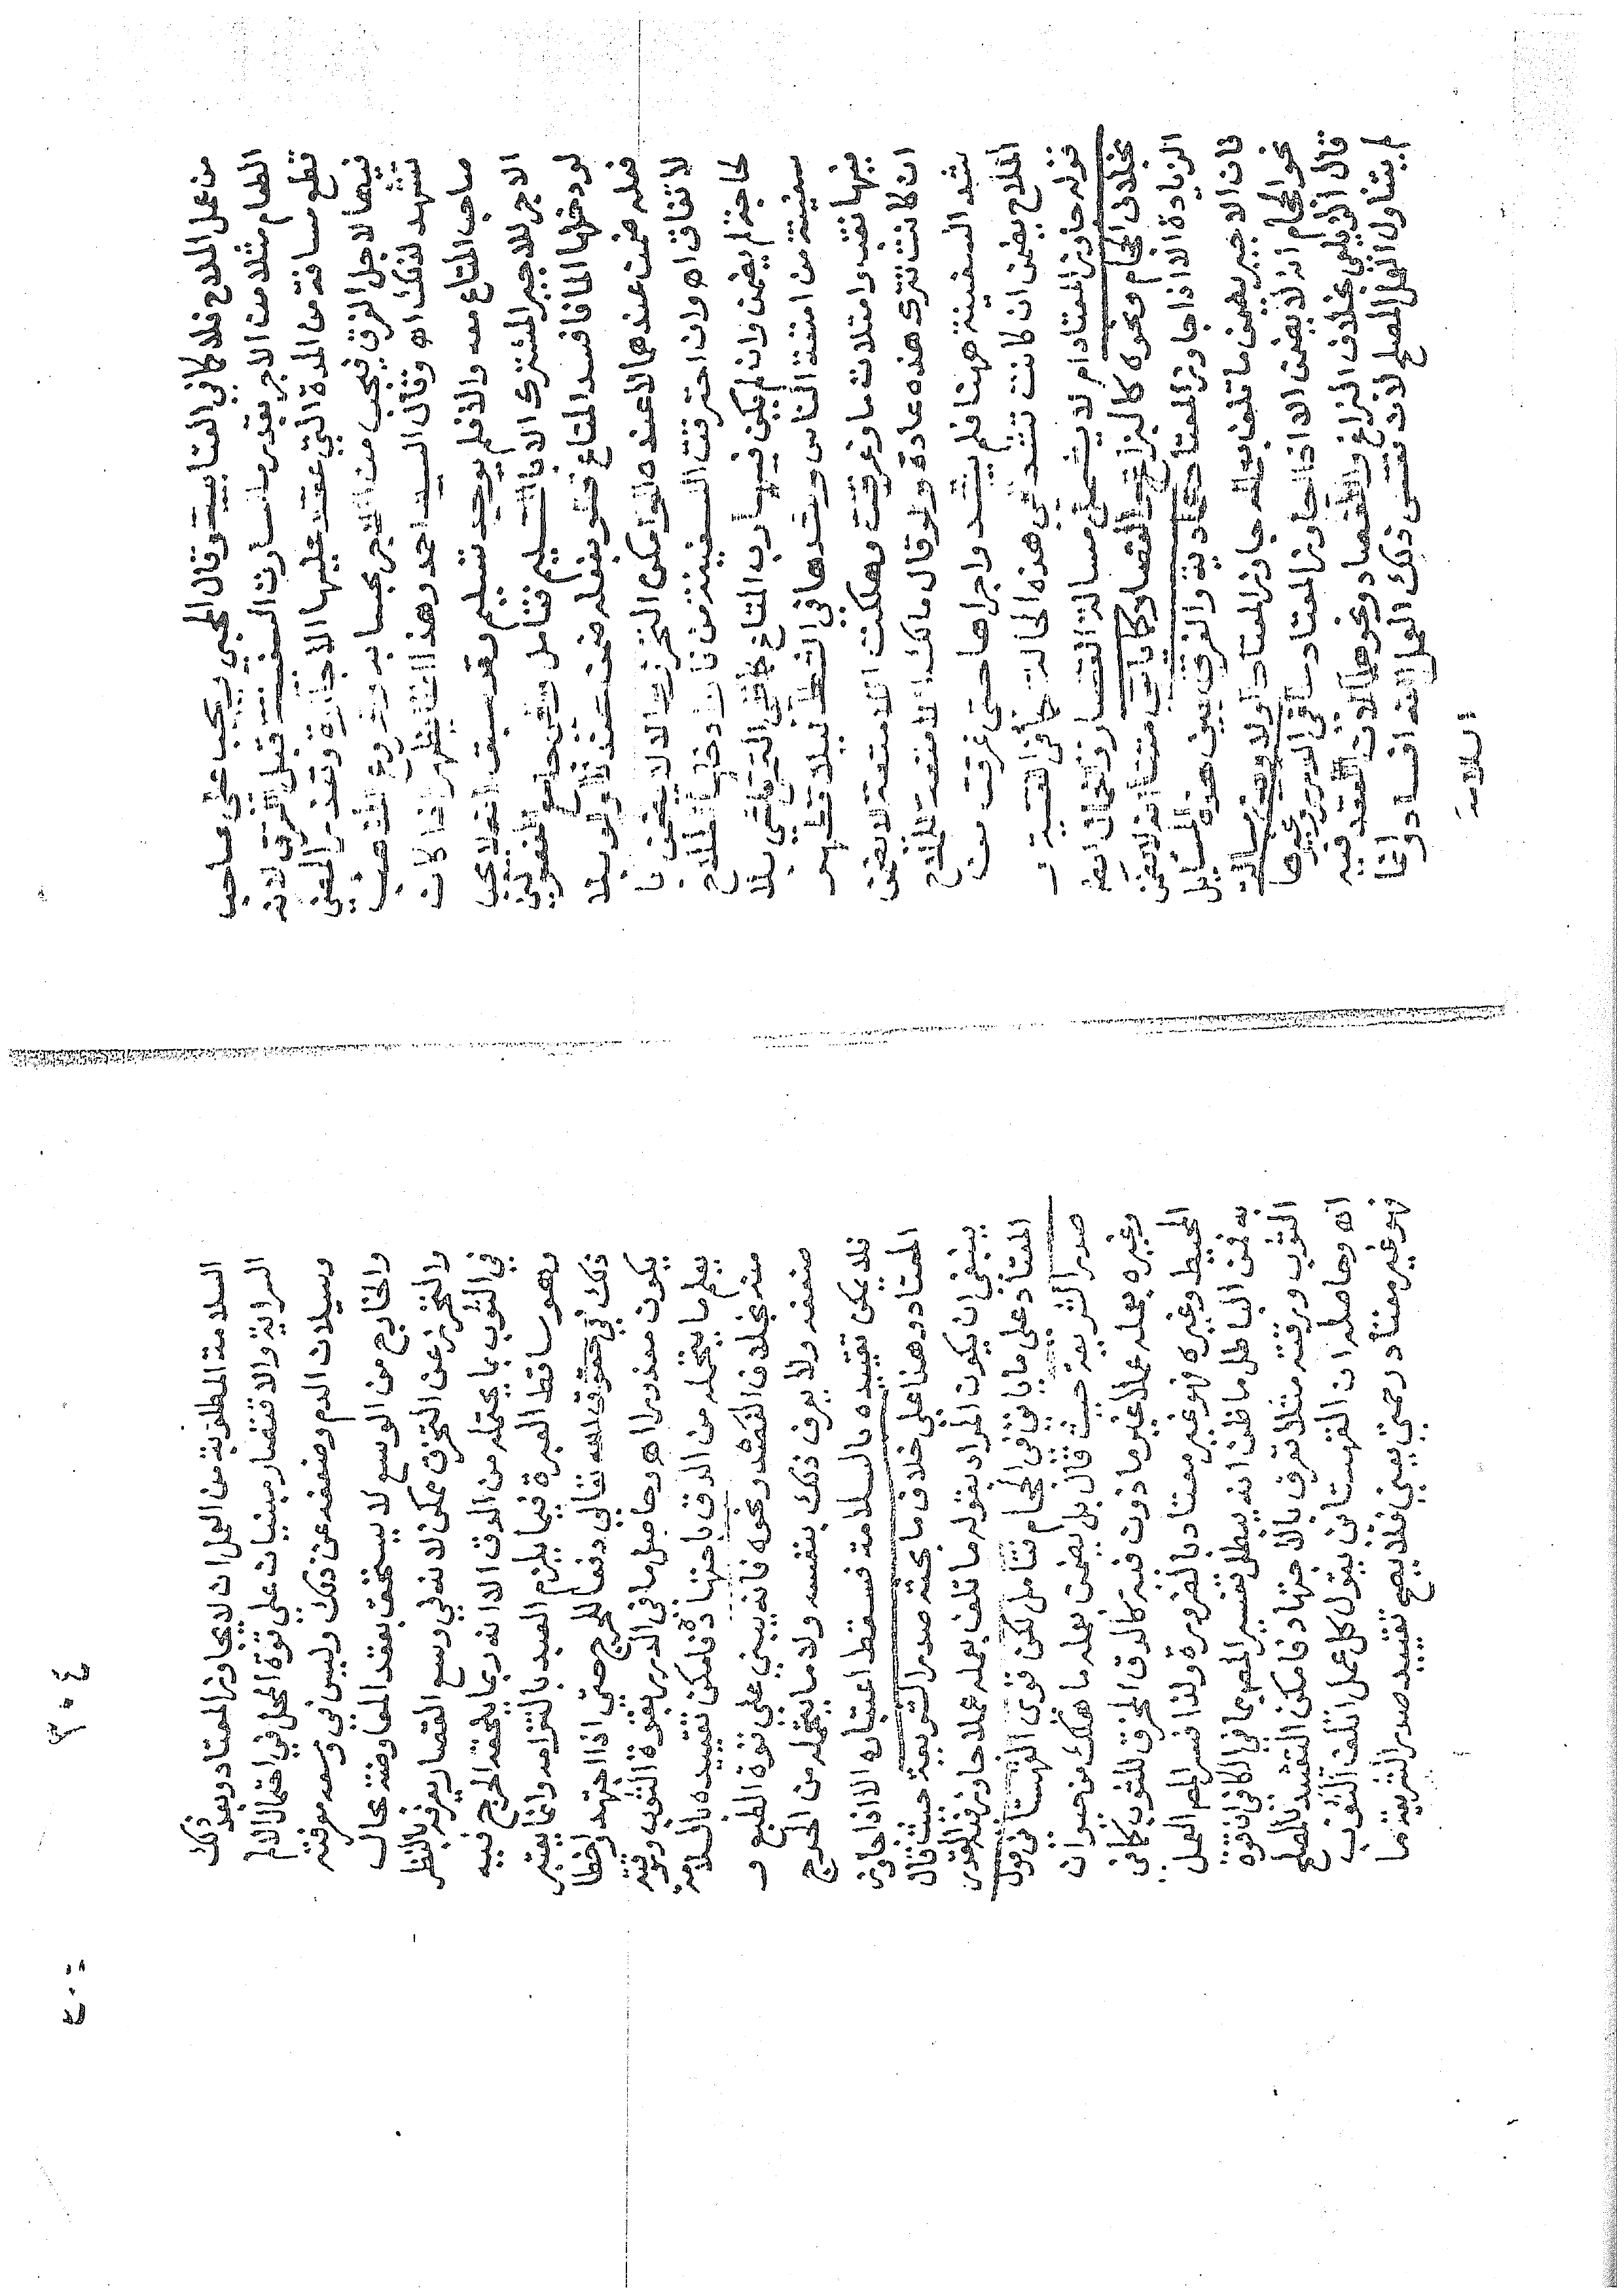 من عمل الملاح فلا كما في العتابية وقال الحموي يجب على صاحب
الطعام مثلا من الاجر بقدر ما سارت السفينة قبل الغرق لانه
قطع مسافة من المدة التي عقد عليها الاجارة وتعذر المضي
فيها لاجل الغرق فيجب من الاجر بحسابه وفروع المذهب
تشهد لذلك اه وقال السيد احمد وهذا انما يظهر اذا كان
صاحب المتاع معه والا فلم يوجد تسليم وقد سبق انه لا يجب
الاجر للاجير المشترك الا بالتسليم فتأمل وفي جامع الفصولين
لو دخلها الماء فافسد المتاع فلو بفعله ضمن عندنا ولو بلا
فعله ضمن عندهما لا عنده لو امكن التحرز والا لا يضمن
لاتفاق اه وان احترقت السفينة من نار دخلها الملاح
لحاجة لم يضمن وان لم يكن فيها رب المتاع
سفينته من امتعة الناس وشدها في الشط ليلا فظهر
فيها نقب وامتلات ماء وغرقت وهلكت الامتعة لا يضمن
ان كانت تترك هذه عادة ولو قال مالك الامتعة للملاح
شد السفينة ههنا فلم يشد واجراها حتى غرقت من
الملاح يضمن ان كانت تشد في هذه الحالة
قوله جاوز المعتاد ام لا يشكل مسالة القصار والحال انه
بخلاف الحجام ونحوه كالبزاغ والفصاد كما يأتي متنا انه لا يضمن
الزيادة الا اذا جاوز المعتاد والفرق بين هذه المسايل
فان الاجير يضمن ما تلف بعمله جاوز المعتاد اولا وبين مسالة
نحو الحجام انه لا يضمن الا اذا جاوز المعتاد سيأتي الدرر وغيرها
قال الزيلعي بخلاف البزاغ والفصاد ونحوهما لان العقد فيه
لم يتناول الفعل المصلح لانه ليس ذلك العمل الا افساد وانما
السلامة
السلامة المطلوبة من العمل ان لا يجاوز المعتاد وبعد ذلك
السراية والاقتصار مبنيان على قوة المحل في احتمال الالم
وسيلان الدم وضعفه عن ذلك وليس في وسعه معرفته
والخارج من الوسع لا يستحق بعقد المعاوضة بحال
والتحرز عن التخرق ممكن لانه في وسع القصار يعرفه بالنظر
في الثوب بما يحتمله من الدق الا انه ربما يلحقه الحرج فيه
وهو ساقط العبرة فيما يلزم العبد بالتزامه وانما يعتبر
ذلك في حقوق الله تعالى دفعا للحرج حتى اذا اجتهد واخطا
يكون معذورا اه وحاصل ما في الدرر بقوة الثوب ورقته
يعلم ما يتحمله من الدق باجتهاده فامكن تقييده بالسلامة
منه بخلاف الفصد ونحوه فانه يبنى على قوة الطبع و
ضعفه ولا يعرف ذلك بنفسه ولا ما يتحمله من الجرح
فلا يمكن تقييده بالسلامة فسقط اعتباره الا اذا جاوز
المعتاد وهذا على خلاف ما بحثه صدر الشريعة حيث قال
ينبغي ان يكون المراد بقوله ما تلف بعمله عملا جاوز فيه القدر
المعتاد على ما يأتي في الحجام فتأمل لكن قوى القهستاني قول
صدر الشريعة حيث قال بل يضمن بعمله ما هلك من حيوان
وغيره بعمله عملا غير ماذون فيه كالدق المخرق للثوب كما في
المحيط وغيره فهو غير معتاد بالضرورة ولذا فسر المص العمل
به فمن الباطل ما ظن انه يبطل تفسير المص بما في الكافي ان قوة
الثوب ورقته مثلا تعرف بالاجتهاد فامكن التقييد بالمصلح
اه وحاصله ان القهستاني يقول كل عمل اتلف الثوب
فهو غير معتاد وحتى يعني فلا يصح تقييد صدر الشريعة بما
٤٠٣